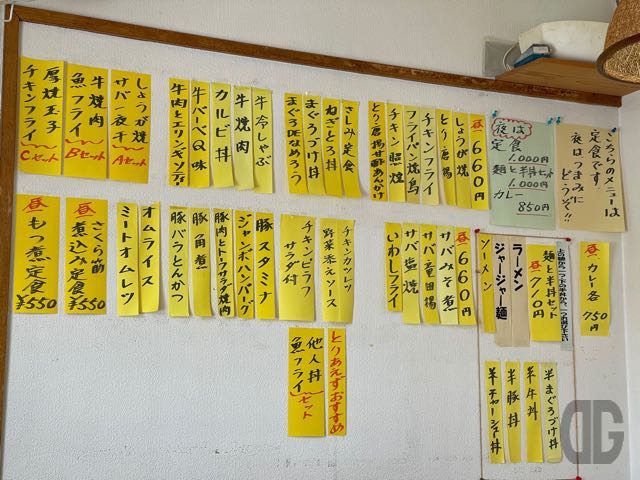 こちらのメニューは
定食です
夜はつまみに
どうぞ!!
夜は
定食
1.000円
麺と半丼セット
1.000円
カレー
850円
昼660円
しょうが焼
とり唐揚
チキンフライ
フライパン焼鳥
チキン照焼
とり唐揚甘酢あんかけ
さしみ定食
ねぎとろ丼
まぐろづけ丼
まぐろDEなめろう
牛冷しゃぶ
牛焼肉
カルビ丼
牛バーベQ味
牛肉とエリンギ
しょうが焼
サバ一夜干
Aセット
牛焼肉
魚フライ
Bセット
厚焼玉子
チキンフライ
Cセット
昼
カレー各
750円
上の麺から一つ
麺と半丼セット
昼710円
ラーメン
ジャージャー麺
ソーメン
昼660円
サバみそ煮
サバ竜田揚
サバ塩焼
いわしフライ
チキンカツレツ
野菜添えソース
チキンピラフ
サラダ付
豚スタミナ
ジャンボハンバーグ
豚肉とトーフサラダ焼肉
豚角煮
豚バラとんかつ
オムライス
ミートオムレツ
昼
さくら筋
煮込み定食
¥550
昼
もつ煮定食
¥550
半まぐろづけ丼
半牛丼
半豚丼
半チャーシュー丼
とりあえずおすすめ
他人丼
魚フライ
セット
DG